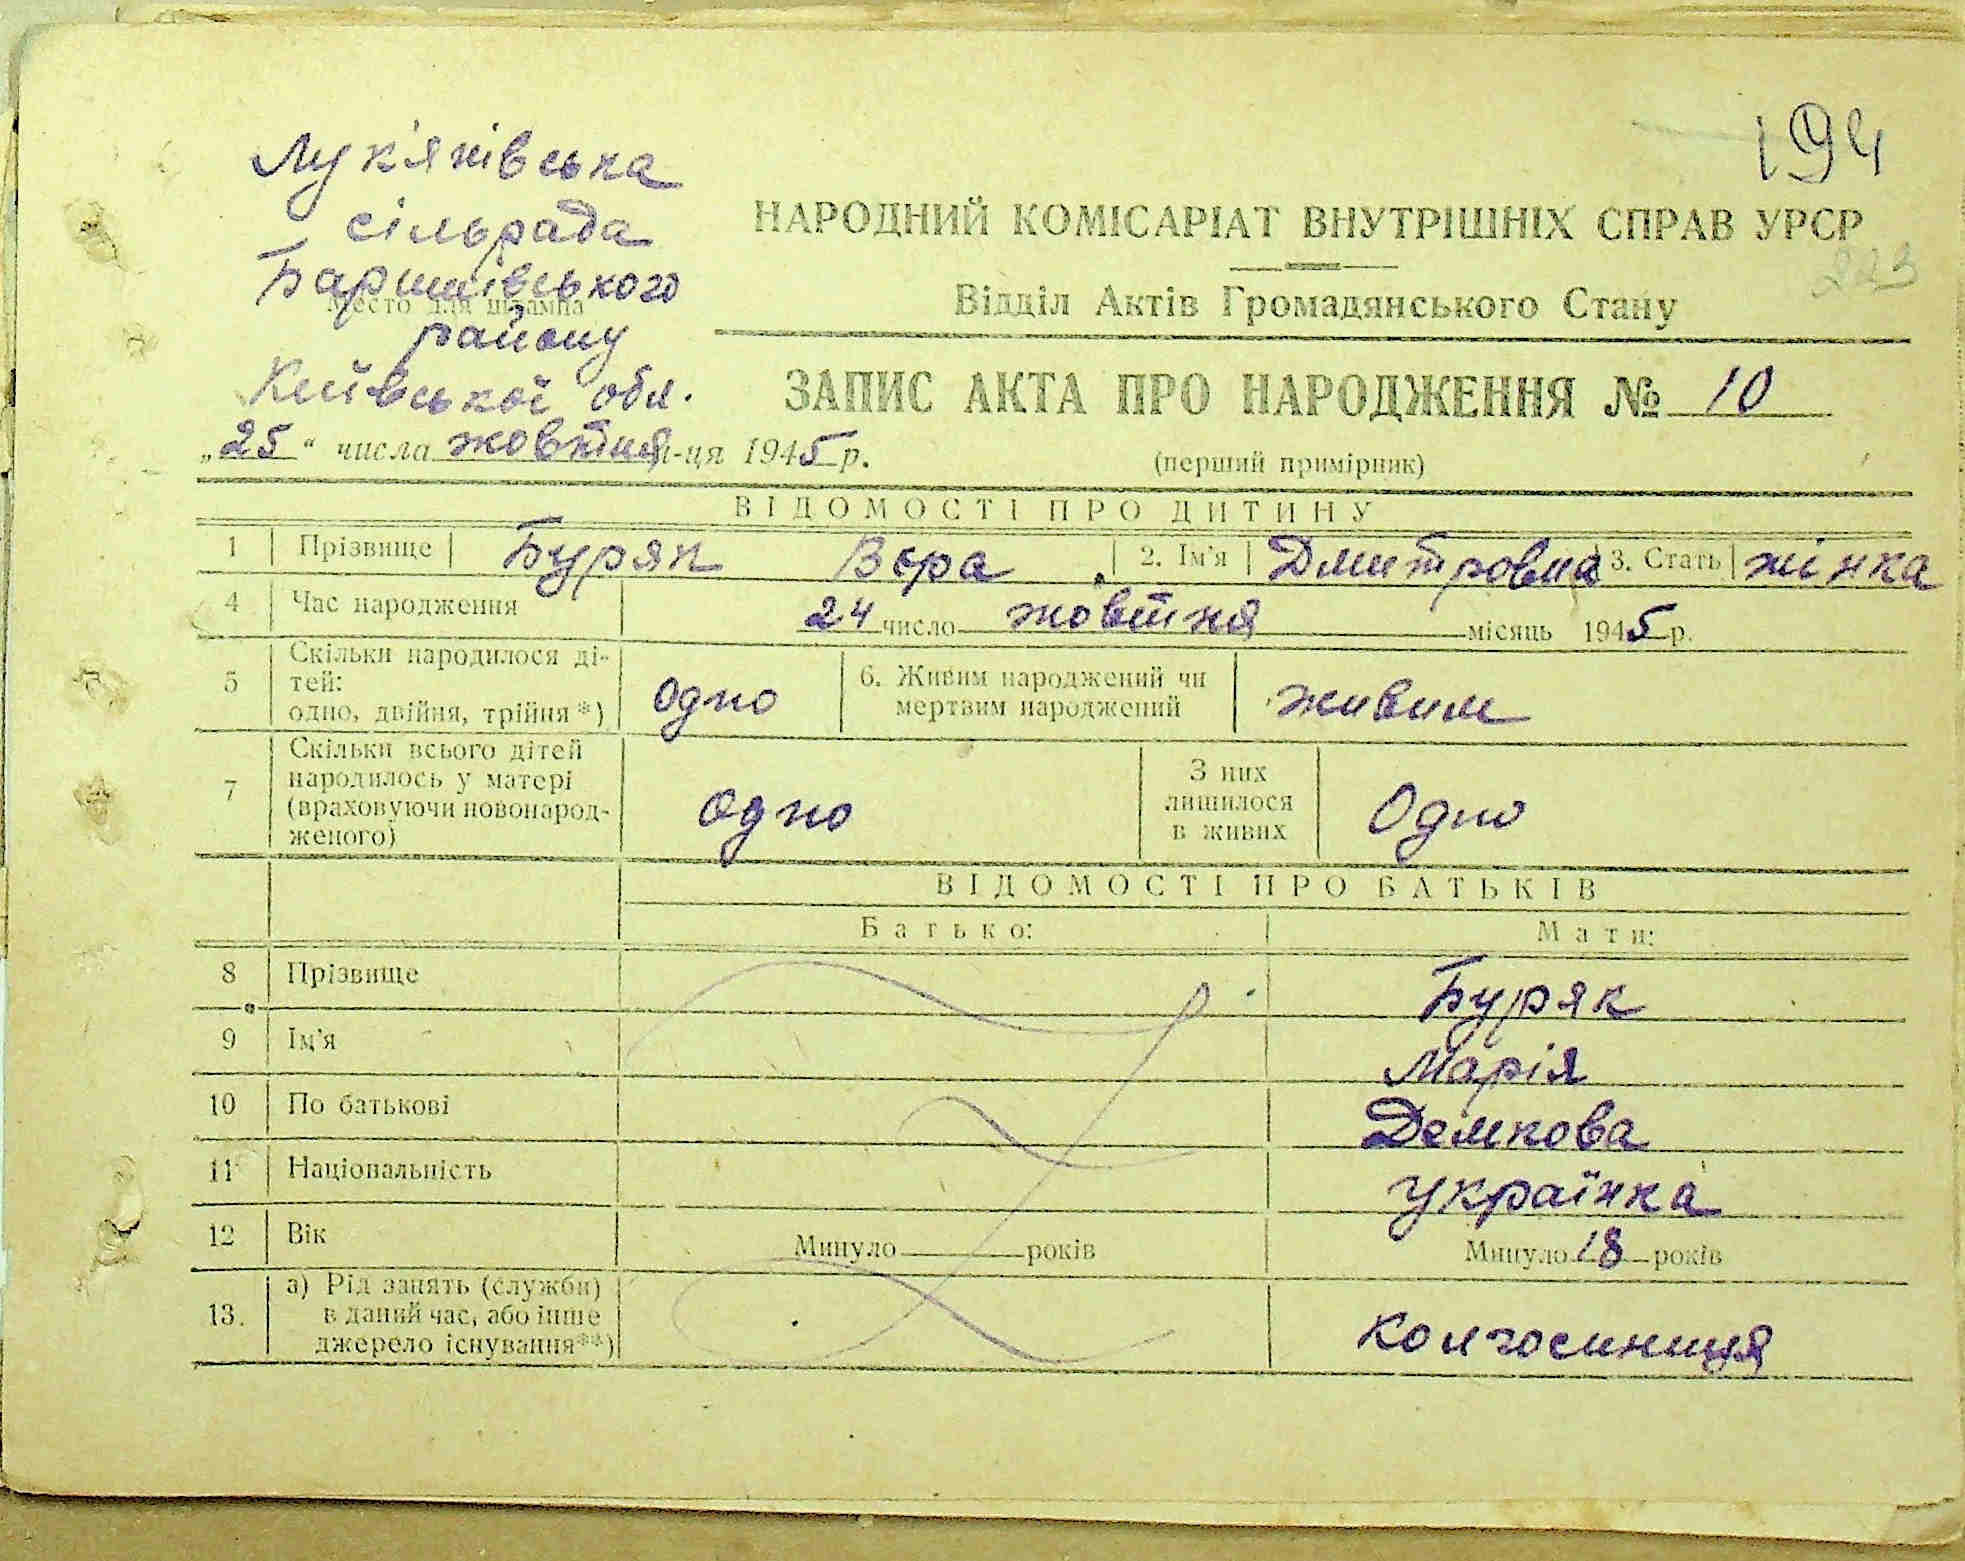 194
Лук'янівська
сільрада
НАРОДНИЙ КОМІСАРІАТ ВНУТРІШНІХ СПРАВ УРСР
223
Баришівського
Место для штампа
Відділ Актів Громадянського Стану
району
Київської обл.
ЗАПИС АКТА ПРО НАРОДЖЕННЯ № 10
„25“ числа жовтня м-ця 1945 р.
(перший примірник)
ВІДОМОСТІ ПРО ДИТИНУ
1 Прізвище Буряк Вєра 2. Ім'я Дмитровна 3. Стать жінка
4 Час народження 24 число жовтня місяць 1945 р.
5 Скільки народилося ді-
тей:
одно, двійня, трійня*) одно 6. Живим народжений чи
мертвим народжений живим
7 Скільки всього дітей
народилось у матері
(враховуючи новонарод-
женого) одно З них
лишилося
в живих Одно
ВІДОМОСТІ ПРО БАТЬКІВ
Батько: Мати:
8 Прізвище Буряк
9 Ім'я Марія
10 По батькові Демкова
11 Національність українка
12 Вік Минуло років Минуло 18 років
13. а) Рід занять (служби)
в даний час, або інше
джерело існування**) колгоспниця